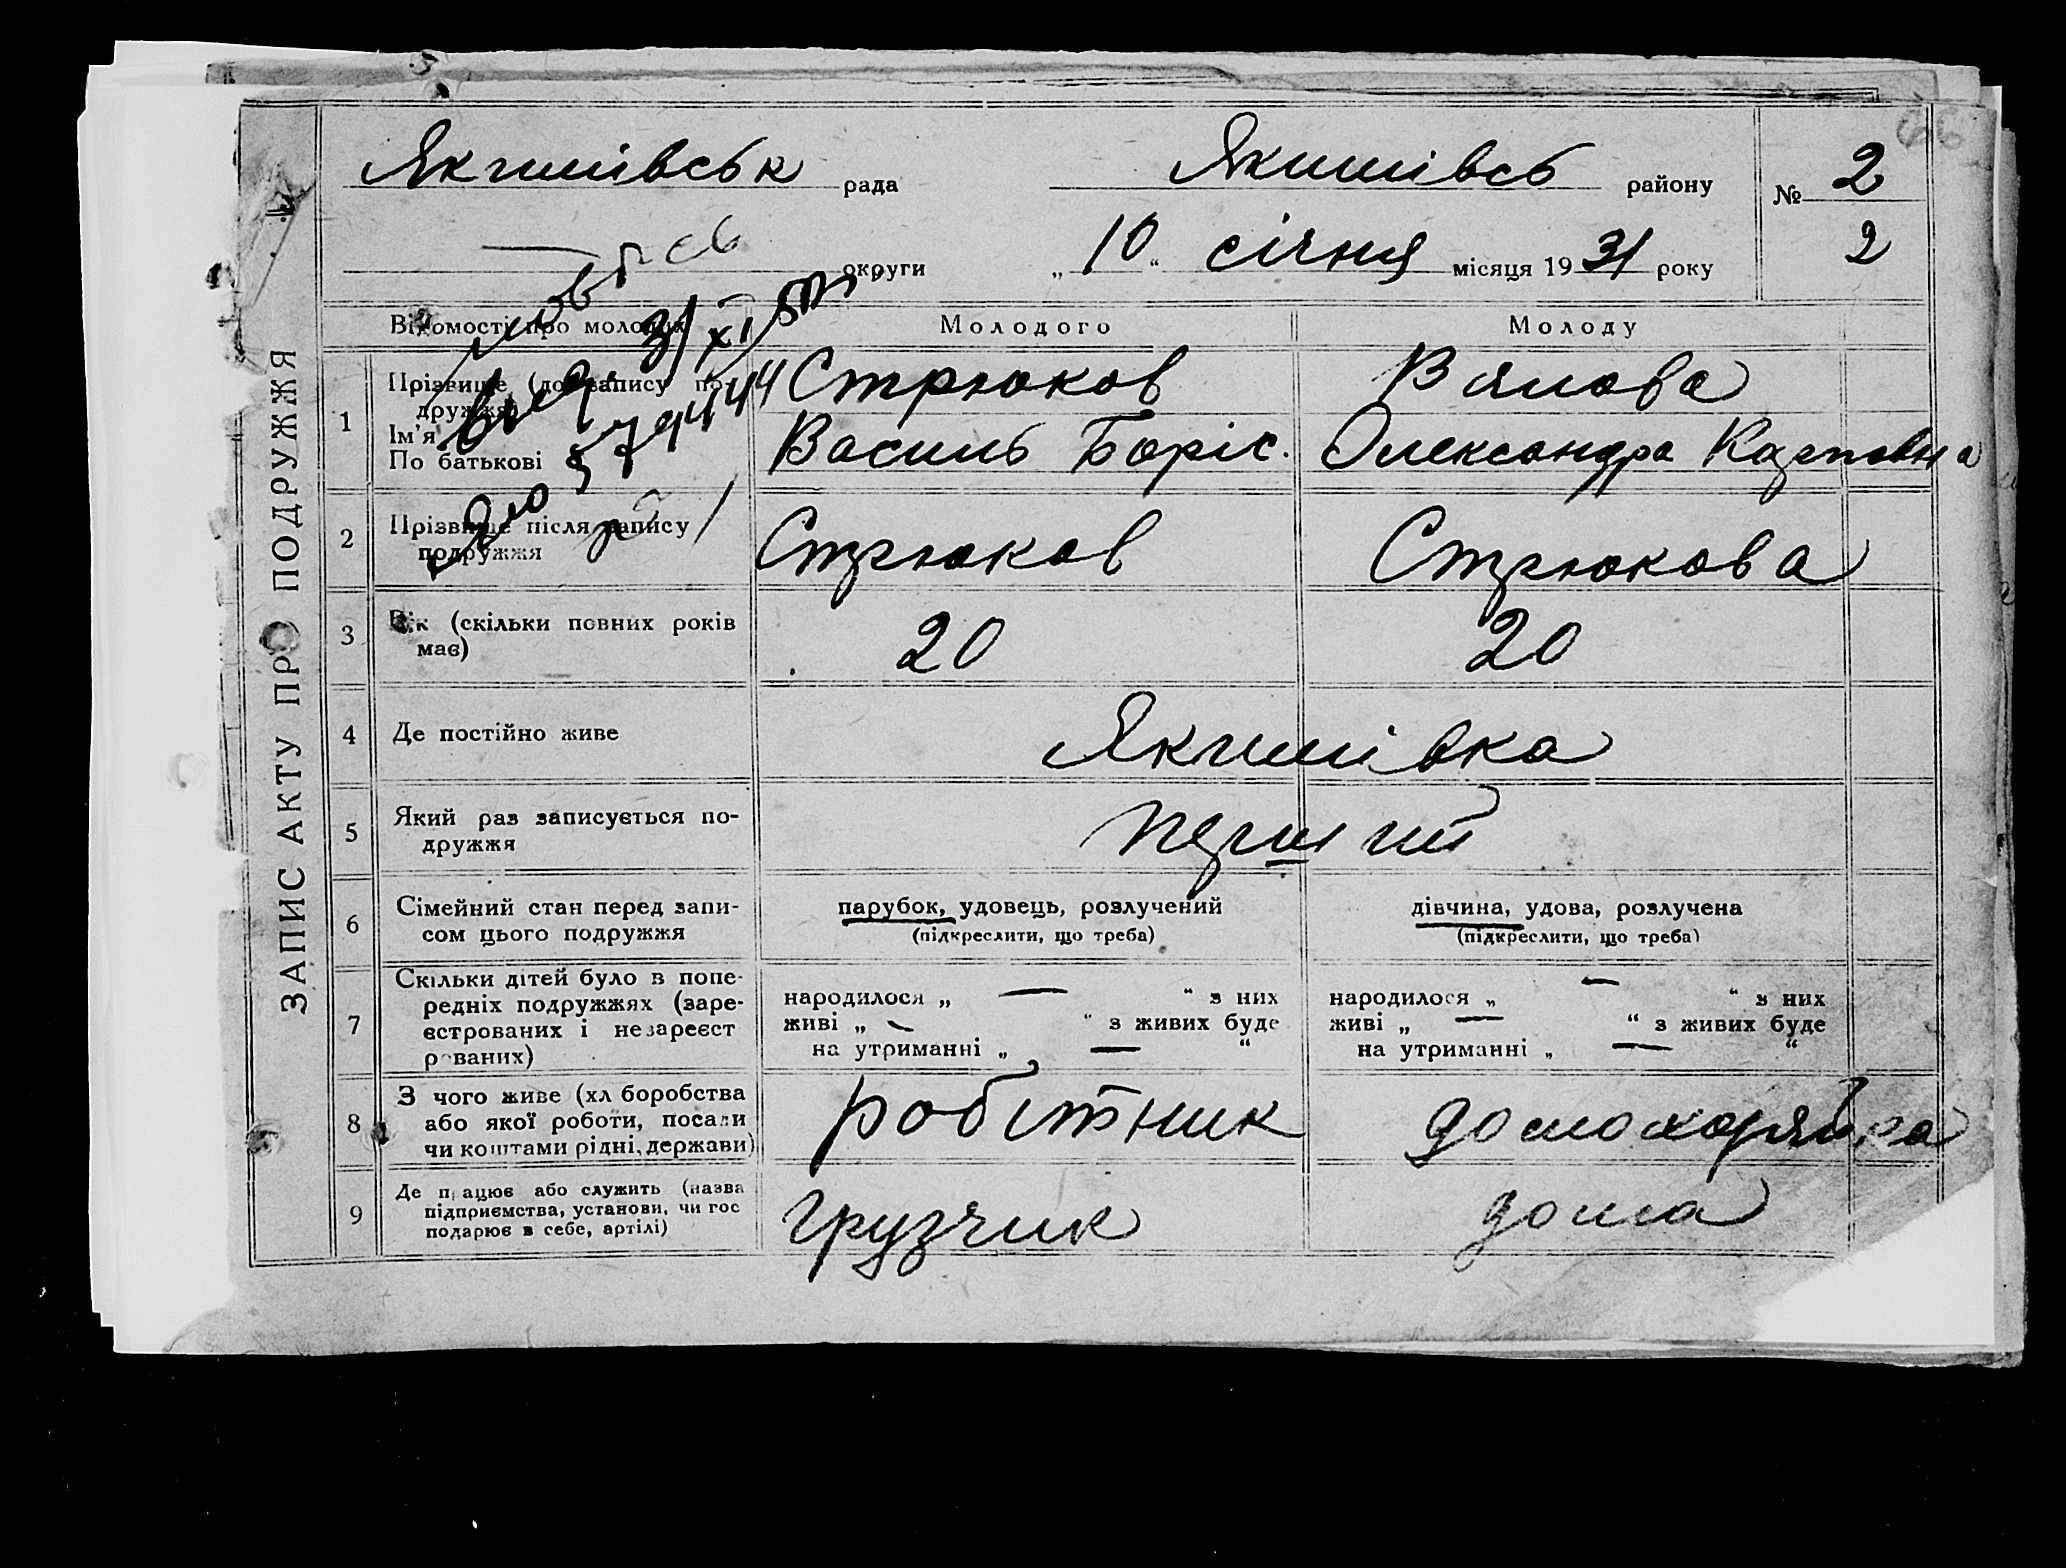 ЗАПИС АКТУ ПРО ПОДРУЖЖЯ
Якимівськ рада Якимівсь району № 2
округи „ 10 “ січня місяця 1931 року 2
Відомості про молодих Молодого Молоду
1 Прізвище (до запису по- Стрюков Вялова
дружжя)
Ім'я Василь Боріс. Олександра Карповна
По батькові
2 Прізвище після запису Стрюков Стрюкова
подружжя
3 Вік (скільки повних років 20 20
має)
4 Де постійно живе Якимівка
5 Який раз записується по- перший
дружжя
6 Сімейний стан перед запи- парубок, удовець, розлучений дівчина, удова, розлучена
сом цього подружжя (підкреслити, що треба) (підкреслити, що треба)
7 Скільки дітей було в попе-
редніх подружжях (заре- народилося „ — “ з них народилося „ — “ з них
єстрованих і незареєст живі „ — “ з живих буде живі „ — “ з живих буде
рованих) на утриманні „ — “ на утриманні „ — “
8 З чого живе (хл боробства робітник домохазяйка
або якої роботи, посади
чи коштами рідні, держави)
9 Де працює або служить (назва грузчик дома
підприємства, установи, чи гос
подарює в себе, артілі)